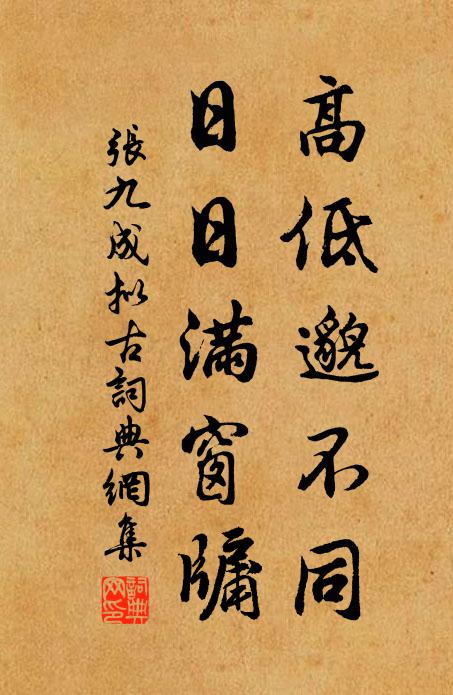 高低邈不同
日日滿窗牖
張九成拟古詞典網集
詞典